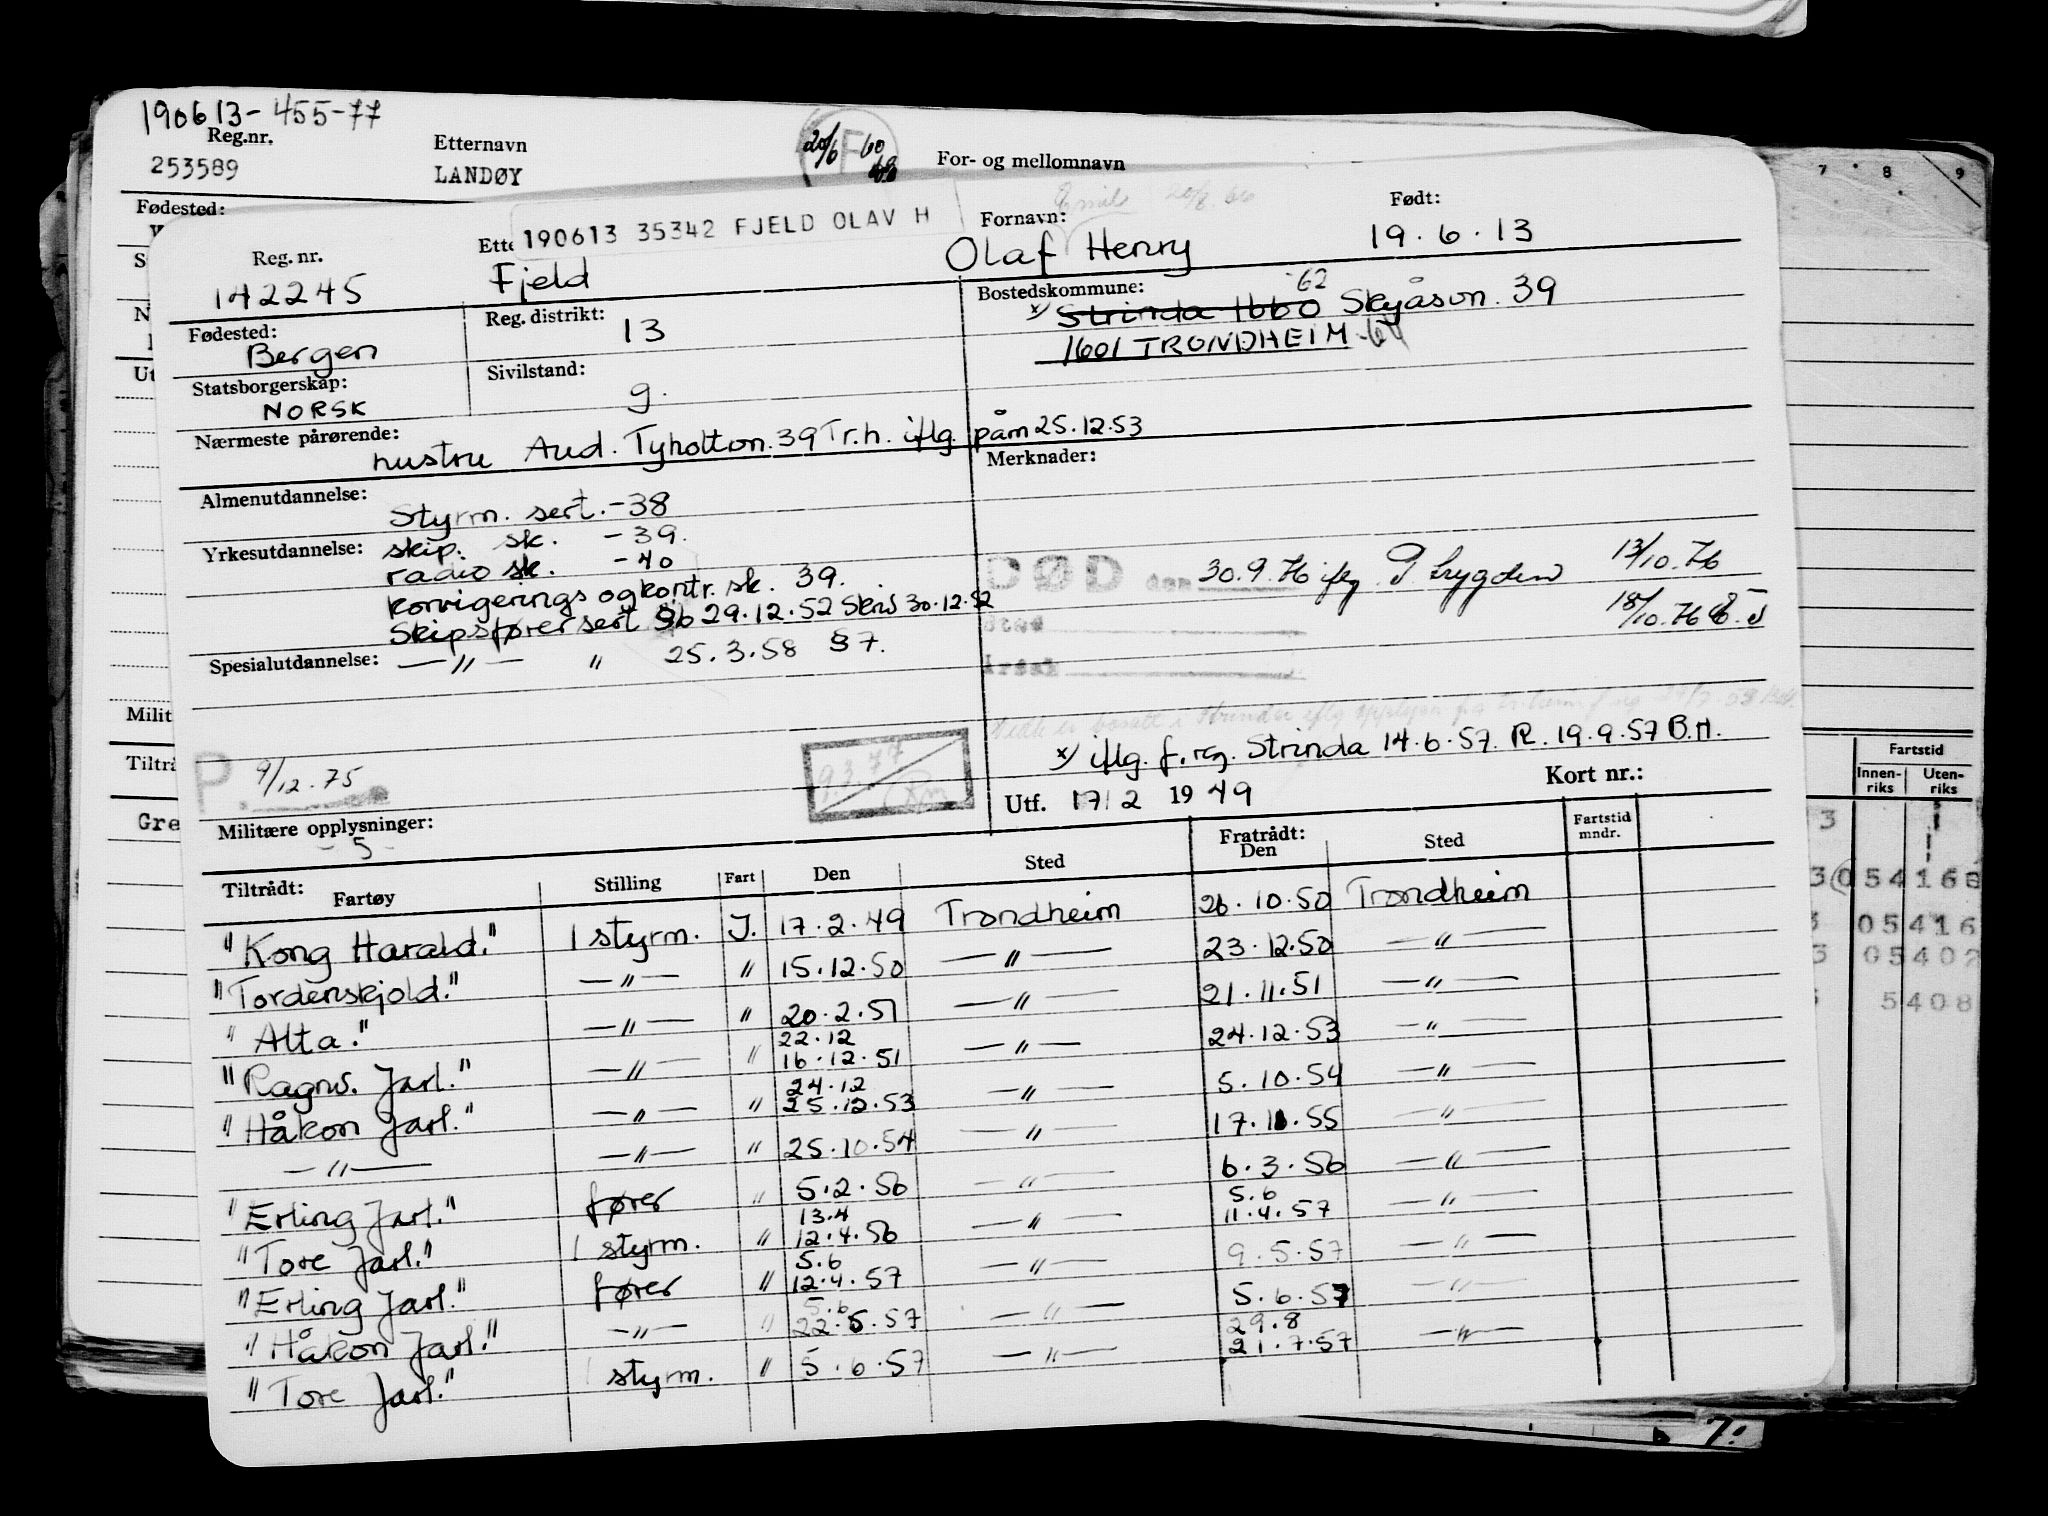 190613-455-77
Reg.nr. Etternavn For- og mellomnavn
253589 LANDØY
Fødested:
190613 35342 FJELD OLAV H
Reg. nr. Fornavn: Født:
142245 Fjeld Olaf Henry 19.6.13
Fødested: Reg. distrikt: Bostedskommune:
Bergen 13 x) Strinda 1660 -62 Skyåsvn. 39
1601 TRONDHEIM
Statsborgerskap: Sivilstand:
NORSK g.
Nærmeste pårørende:
hustru Aud. Tyholtvn. 39 Tr.h. iflg. påm 25.12.53
Almenutdannelse: Merknader:
Styrm. sert. -38
Yrkesutdannelse: skip. sk. -39.
radio sk. -40
korrigerings og kontr. sk. 39.
Skipsfører sert §6 29.12.52 Skrid 30.12.52
Spesialutdannelse: —〃— 〃 25.3.58 §7.
DØD den 30.9.76 iflg. Trygden 13/10.76
Sted 18/10.76
Årsak
P. 9/12.75
9.3.77
x) iflg. f.reg. Strinda 14.6.57. R. 19.9.57 B.H.
Utf. 17/2 1949 Kort nr.:
Militære opplysninger:
-5-
Tiltrådt: Fartøy Stilling Fart Den Sted Fratrådt: Den Sted Fartstid mndr.
"Kong Harald." 1 styrm. I. 17.2.49 Trondheim 26.10.50 Trondheim
"Tordenskjold." —〃— 〃 15.12.50 —〃— 23.12.50 —〃—
"Alta." —〃— 〃 20.2.51 —〃— 21.11.51 —〃—
22.12
"Ragnv. Jarl." —〃— 〃 16.12.51 —〃— 24.12.53 —〃—
24.12
"Håkon Jarl." —〃— 〃 25.12.53 —〃— 5.10.54 —〃—
—〃— —〃— 〃 25.10.54 —〃— 17.11.55 —〃—
"Erling Jarl." fører 〃 5.2.56 —〃— 6.3.56 —〃—
13.4 5.6
"Tore Jarl." 1 styrm. 〃 12.4.56 —〃— 11.4.57 —〃—
5.6
"Erling Jarl." fører 〃 12.4.57 —〃— 9.5.57 —〃—
5.6
"Håkon Jarl." —〃— 〃 22.5.57 —〃— 5.6.57 —〃—
29.8
"Tore Jarl." 1 styrm. 〃 5.6.57 —〃— 21.7.57 —〃—
Milit
Tiltrå
Gre
7 8 9
Fartstid
Innen-riks Uten-riks
05416
05402
5408
7.